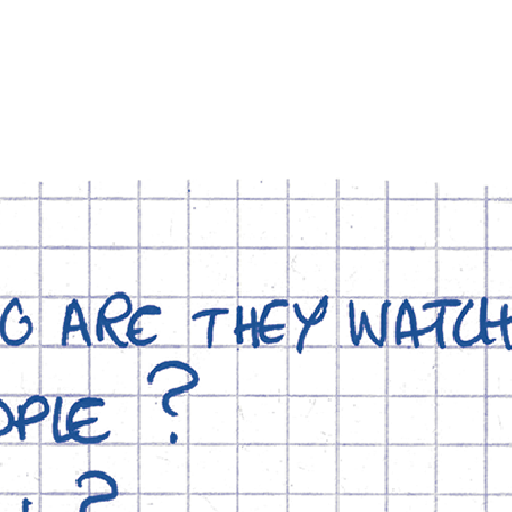 G ARE THEY WATCH
OPLE ?
?